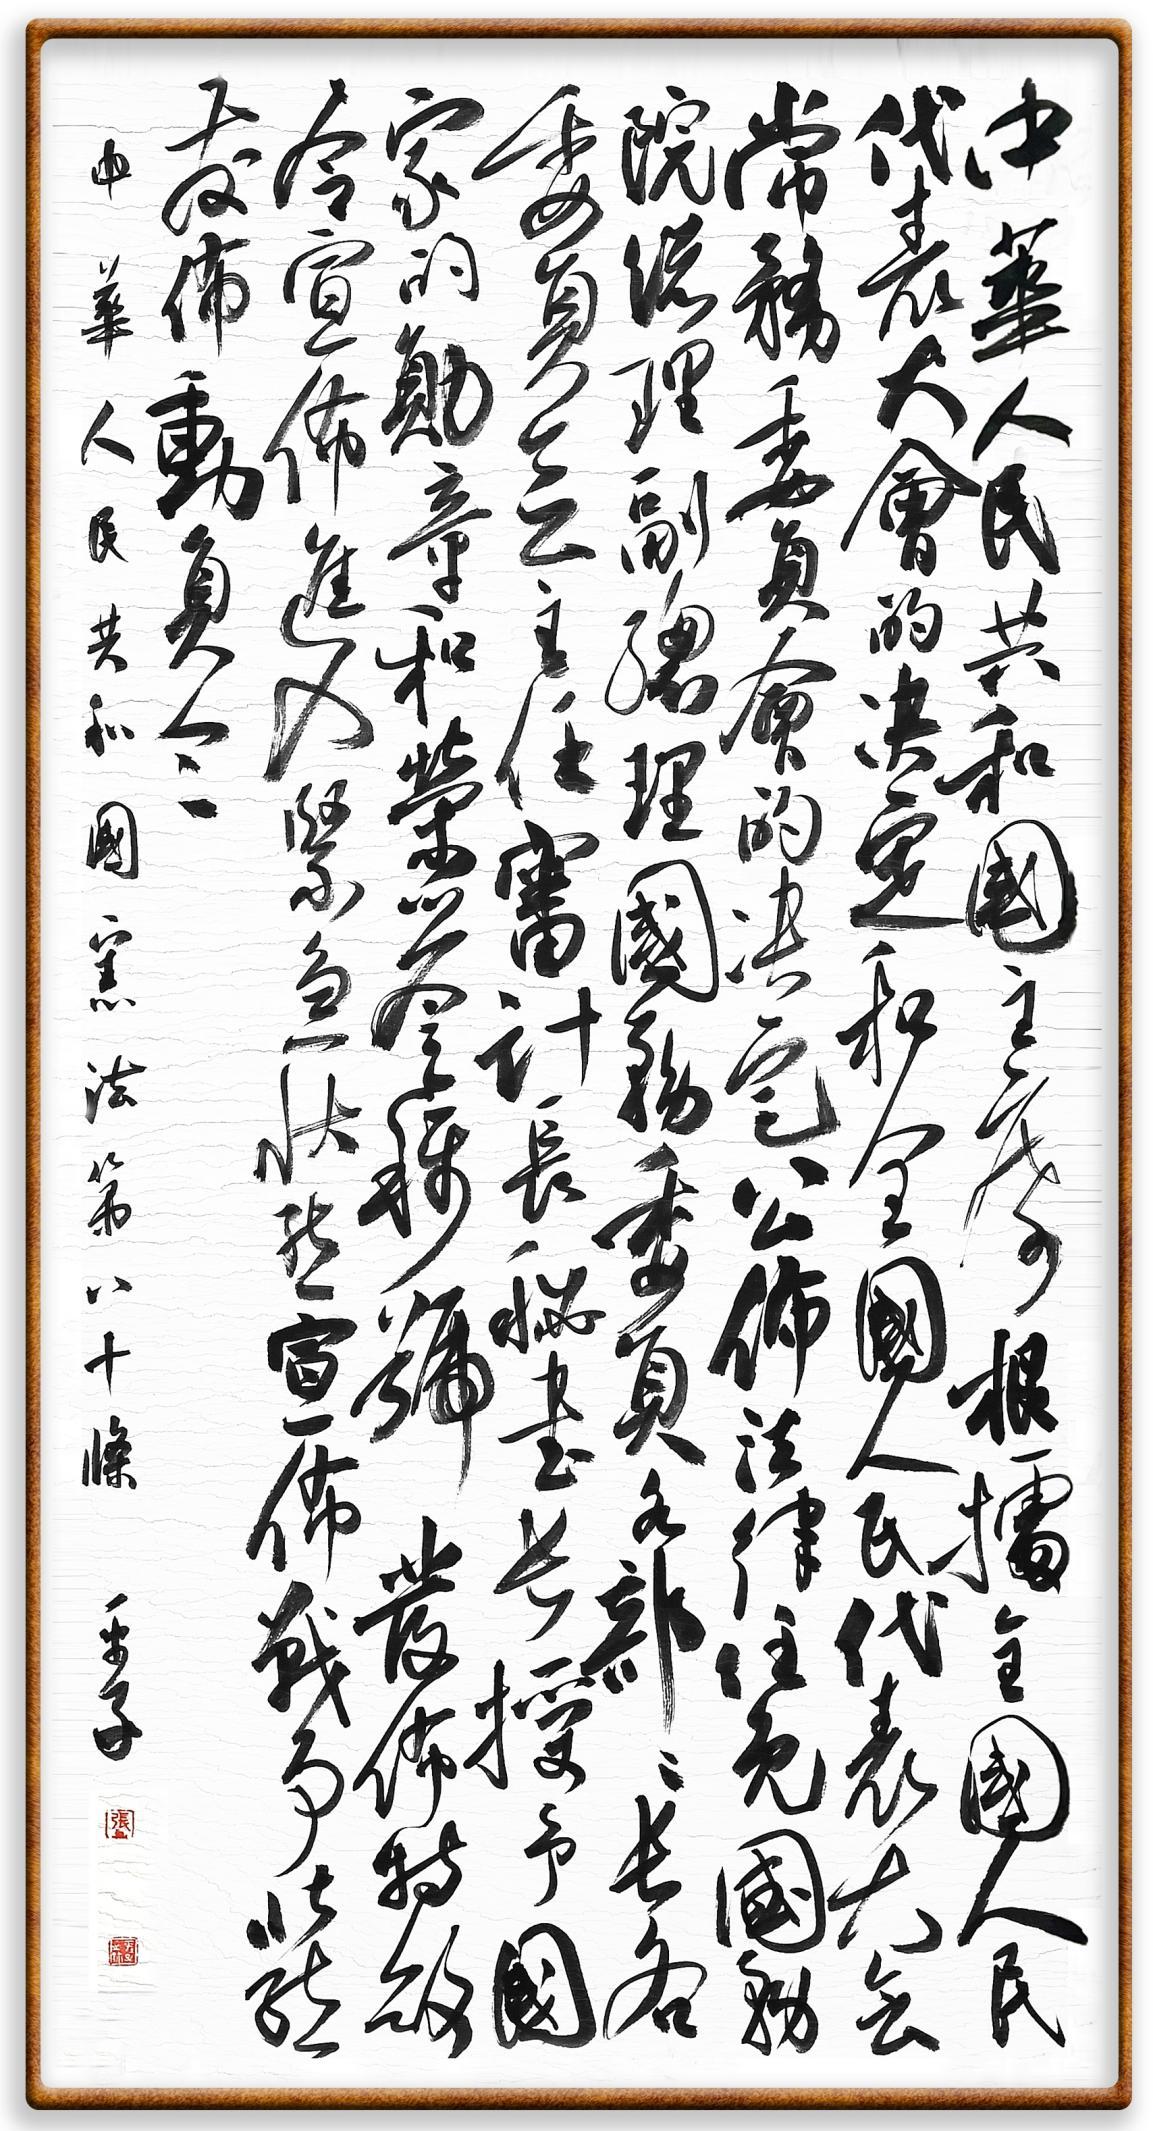 中華人民共和國主席根據全國人民
代表大會的決定和全國人民代表大会
常務委員會的決定公佈法律任免國務
院总理副總理國務委員各部部長各
委員会主任審計長秘書长授予國
家的勛章和榮譽稱號發佈特赦
令宣佈進入緊急狀態宣佈戰争狀態
發佈動員令
中華人民共和國憲法第八十條
張